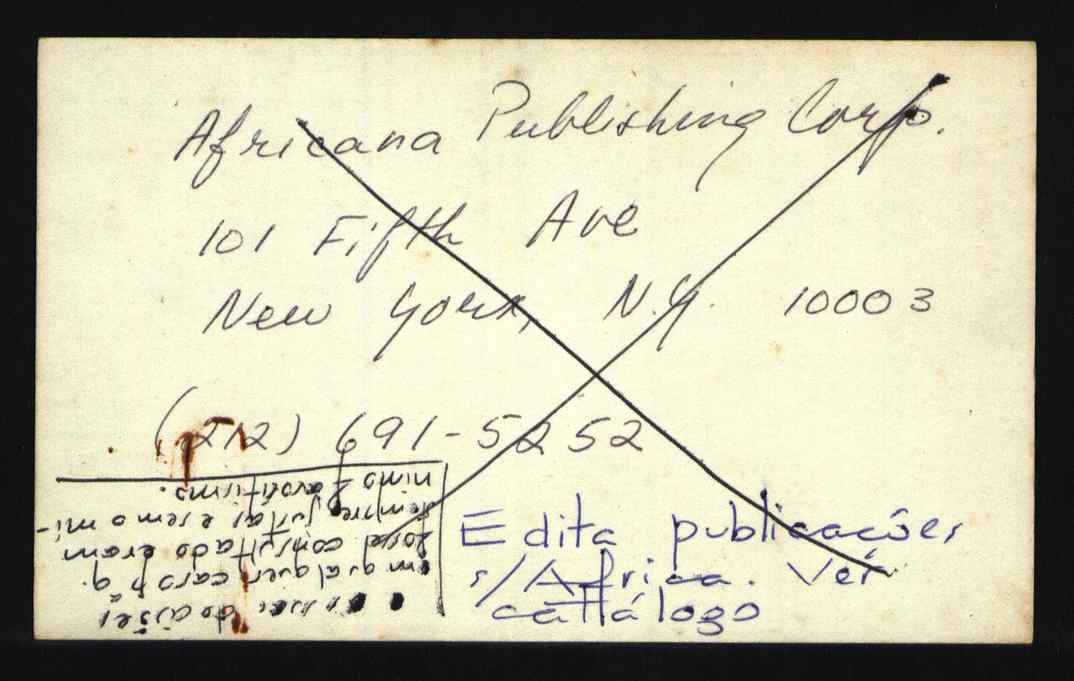 Africana Publishing Corp.
101 Fifth Ave
New York, N.Y. 10003
(212) 691-5252
Edita publicações
s/África. Ver
catálogo
decisões
em qualquer caso p q.
fosse consultado eram
sempre justas e sem o mí-
nimo favoritismo.